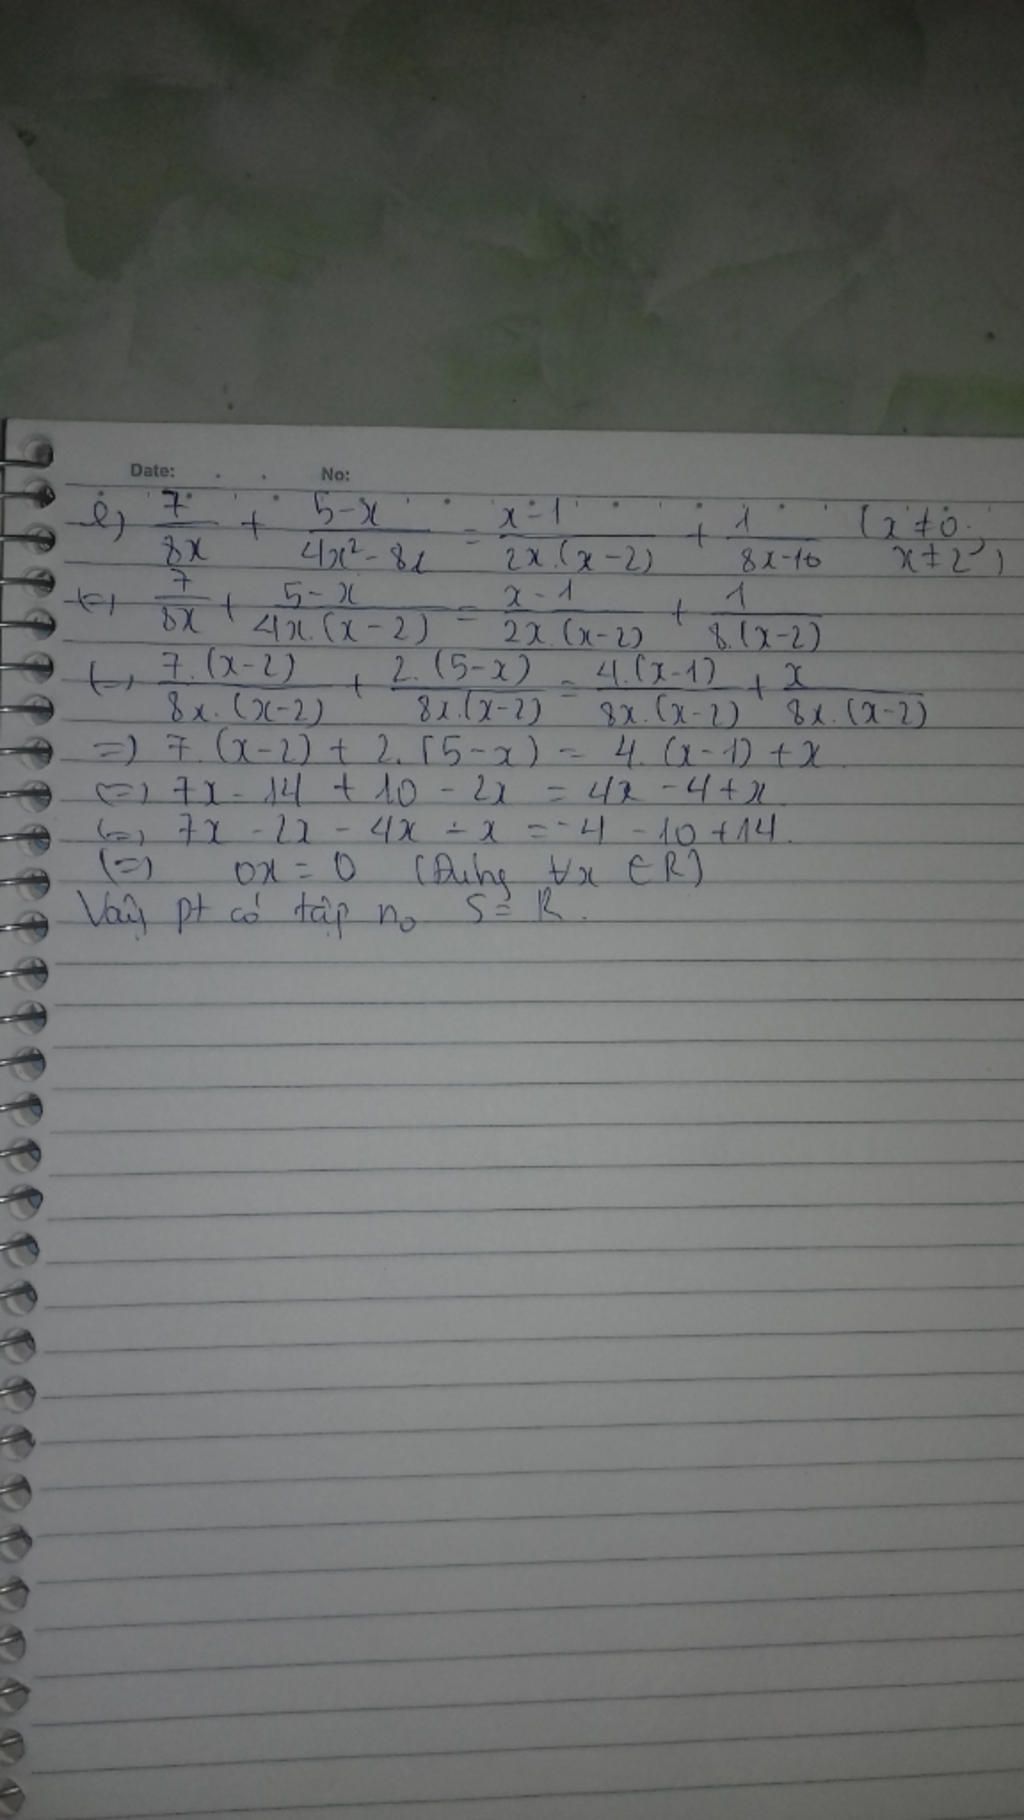 Date: No:
e) 7/8x + 5-x/4x² - 8x = x-1/2x.(x-2) + 1/8x-16 (x ≠ 0; x ≠ 2)
(=) 7/8x + 5-x/4x.(x-2) = x-1/2x.(x-2) + 1/8.(x-2)
(=) 7.(x-2)/8x.(x-2) + 2.(5-x)/8x.(x-2) = 4.(x-1)/8x.(x-2) + x/8x.(x-2)
=) 7.(x-2) + 2.(5-x) = 4.(x-1) + x
(=) 7x - 14 + 10 - 2x = 4x - 4 + x
(=) 7x - 2x - 4x - x = -4 - 10 + 14.
(=) 0x = 0 (Đúng ∀x ∈ R)
Vậy pt có tập no S = R.